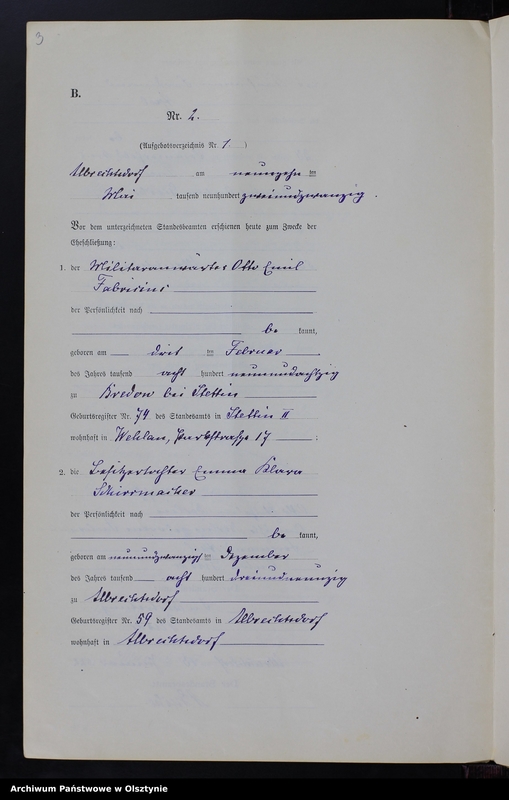 3
B.
Nr. 2.
(Aufgebotsverzeichnis Nr. 1.)
Albrechtsdorf am neunzehn ten
Mai tausend neunhundert zweiundzwanzig.
Vor dem unterzeichneten Standesbeamten erschienen heute zum Zwecke der
Eheschließung:
1. der Militäranwärter Otto Emil
Fabricius
der Persönlichkeit nach
be kannt,
geboren am drit ten Februar
des Jahres tausend acht hundert neunundachtzig
zu Bredow bei Stettin
Geburtsregister Nr. 74 des Standesamts in Stettin II
wohnhaft in Wehlau, Parkstraße 17;
2. die Besitzertochter Emma Klara
Schirrmacher
der Persönlichkeit nach
be kannt,
geboren am neunundzwanzigsten Dezember
des Jahres tausend acht hundert dreiundneunzig
zu Albrechtsdorf
Geburtsregister Nr. 59 des Standesamts in Albrechtsdorf
wohnhaft in Albrechtsdorf
Archiwum Państwowe w Olsztynie